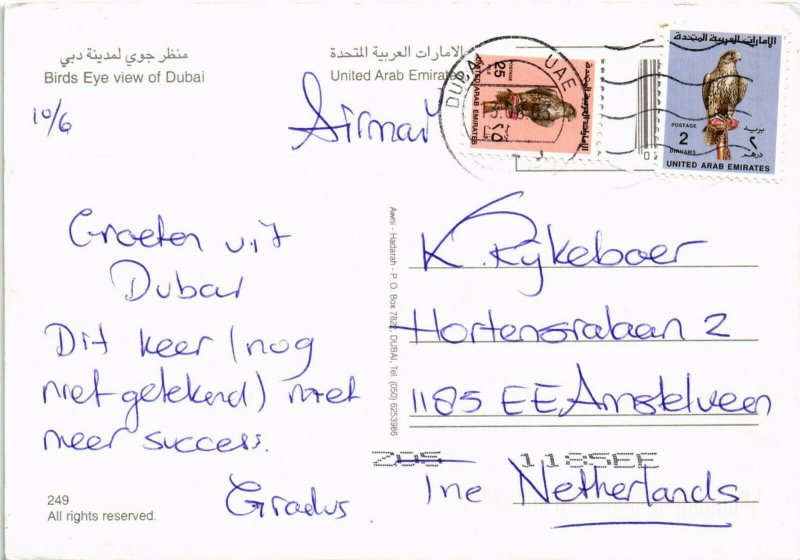 منظر جوي لمدينة دبي
Birds Eye view of Dubai
الامارات العربية المتحدة
United Arab Emirates
10/6
Airmail
DUBAI UAE
25
POSTAGE
UNITED ARAB EMIRATES
الامارات العربية المتحدة
٢٥
الامارات العربية المتحدة
POSTAGE
2
DIRHAMS
بريد
٢
درهم
UNITED ARAB EMIRATES
Groeten uit
Dubai
Dit keer (nog
niet getekend) met
meer success.
Gradus
Awni - Hadarah - P. O. Box 7822, DUBAI, Tel. (050) 6253986
K. Rijkeboer
Hortensialaan 2
1185 EE Amstelveen
1185EE
The Netherlands
249
All rights reserved.